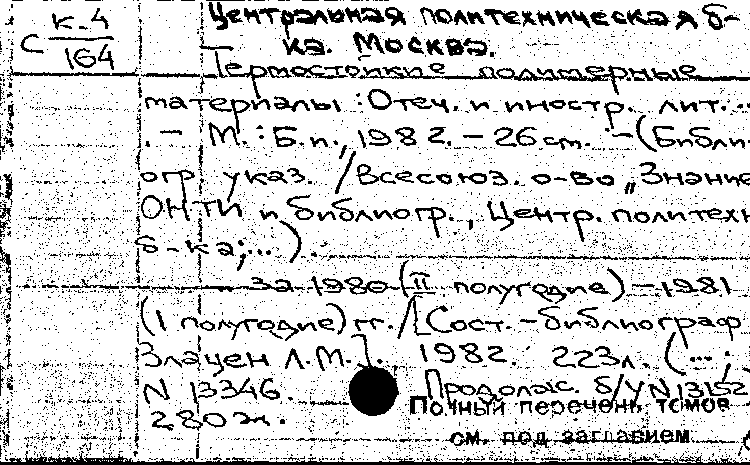 к.4 Центральная политехническая б-
С 164 ка. Москва.
Термостойкие полимерные
материалы : Отеч. и иностр. лит. ...
. – М. : Б.и., 1982. – 26 см. – (Библи
огр. указ. / Всесоюз. о-во „Знание
ОНТИ и библиогр., Центр. политехн
б-ка; ...).
за 1980 (II полугодие) – 1981
(I полугодие) гг. / [Сост. – библиограф
Злачен Л.М.]. 1982. 223л. (... ;
N 13346. Продолж. б/у N 13152
280 ж. Полный перечень томов
см. под заглавием